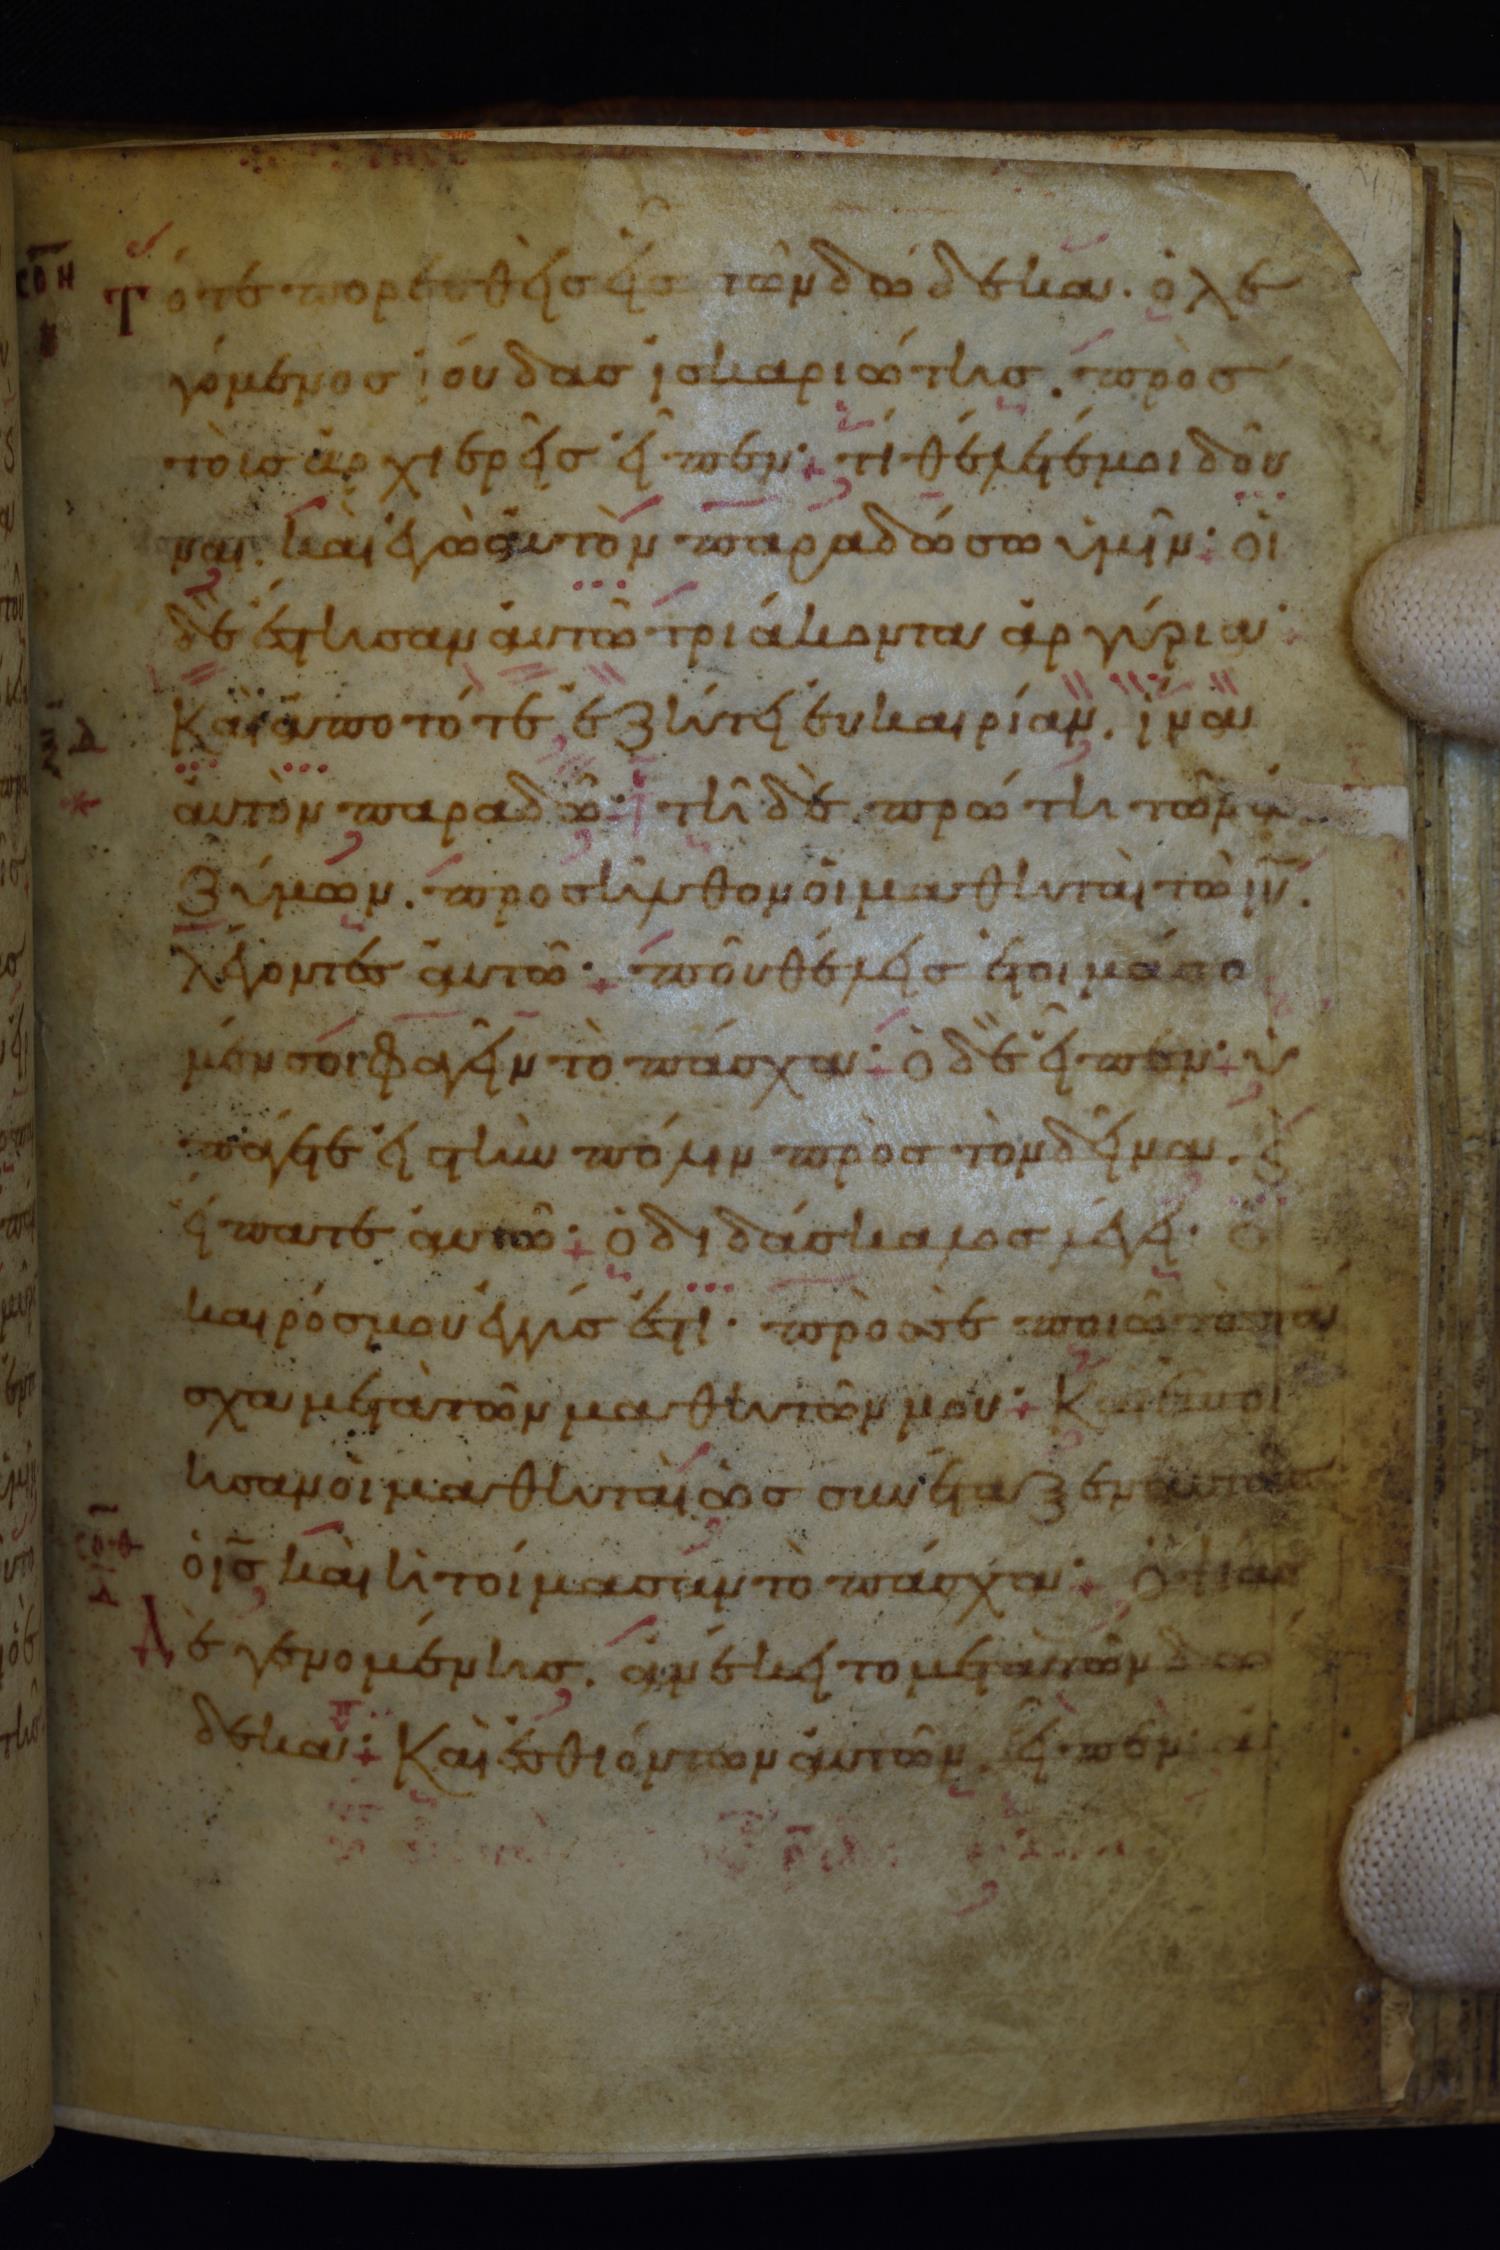 Τότε πορευθεὶς εἷς τῶν δώδεκα. ὁ λε
γόμενος ἰούδας ἰσκαριώτης. πρὸς
τοὺς ἀρχιερεῖς εἶπεν· τί θέλετέ μοι δοῦ
ναι. καὶ ἐγὼ αὐτὸν παραδώσω ὑμῖν· οἱ
δὲ ἔστησαν αὐτῶ τριάκοντα ἀργύρια·
Καὶ ἀπο τότε ἐζήτει εὐκαιρίαν. ἵνα
αὐτὸν παραδῶ· τῆ δὲ πρώτη τῶν ἀ
ζύμων. προσῆλθον οἱ μαθηταὶ τῶ ιυ.
λέγοντες αὐτῶ· ποῦ θέλεις ἑτοιμάσο
μέν σοι φαγεῖν τὸ πάσχα· ὁ δὲ εἶπεν· ὑ
πάγετε εἰς τὴν πόλιν πρὸς τὸν δεῖνα.
εἴπατε αὐτῶ· ὁ διδάσκαλος λέγει· ὁ
καιρός μου ἐγγύς ἐστι· πρὸς σὲ ποιῶ τὸ πά
σχα μετὰ τῶν μαθητῶν μου· Καὶ ἐποί
ησαν οἱ μαθηταὶ ὡς συνέταξεν αὐτοῖς
ὁ ις καὶ ἡτοίμασαν τὸ πάσχα· Ὀψίας
Δὲ γενομένης. ἀνέκειτο μετὰ τῶν δώ
δεκα· Καὶ ἐσθιόντων αὐτῶν. εἶπεν· ἀ